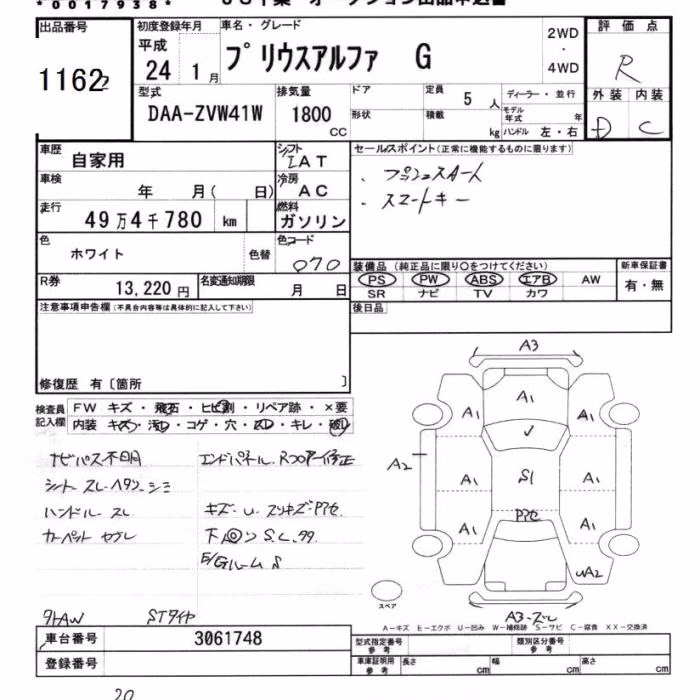 *0017938*
出品番号
1162 2
初度登録年月
平成
24 1月
車名・グレード
プリウスアルファ G
2WD
・
4WD
評価点
R
外装 内装
D C
型式
DAA-ZVW41W
排気量
1800
CC
ドア
形状
定員
5 人
積載
kg
ディーラー・並行
モデル年式 年
ハンドル 左・右
車歴
自家用
シフト
IAT
車検
年 月( 日)
冷房
AC
走行
49万4千780 km
燃料
ガソリン
色
ホワイト
色替
色コード
070
R券
13,220円
名変通知期限
月 日
セールスポイント(正常に機能するものに限ります)
・プッシュスタート
・スマートキー
装備品(純正品に限り○をつけてください)
PS PW ABS エアB AW
SR ナビ TV カワ
新車保証書
有・無
後日品
注意事項申告欄(不具合内容等は具体的に記入して下さい)
修復歴 有〔箇所 〕
検査員
記入欄
FW キズ・飛石・ヒビ割・リペア跡・×要
内装 キズ・汚レ・コゲ・穴・スレ・キレ・破レ
ナビパス不明
シート スレ・ヘタリ・シミ
ハンドル スレ
カーペット ヨゴレ
エンドパネル、Rフロアー修正
キズ・U・スリキズ・P7セ
S.C.
E/Gルーム S
A3
A1
A1
A1
A2
S1
A1
A1
A1
A1
UA2
A3
スペア
A-キズ E-エクボ U-凹み W-補修跡 S-サビ C-腐食 XX-交換済
車台番号
3061748
登録番号
型式指定番号
参考
類別区分番号
参考
車庫証明用
参考
長さ cm
幅 cm
高さ cm
20